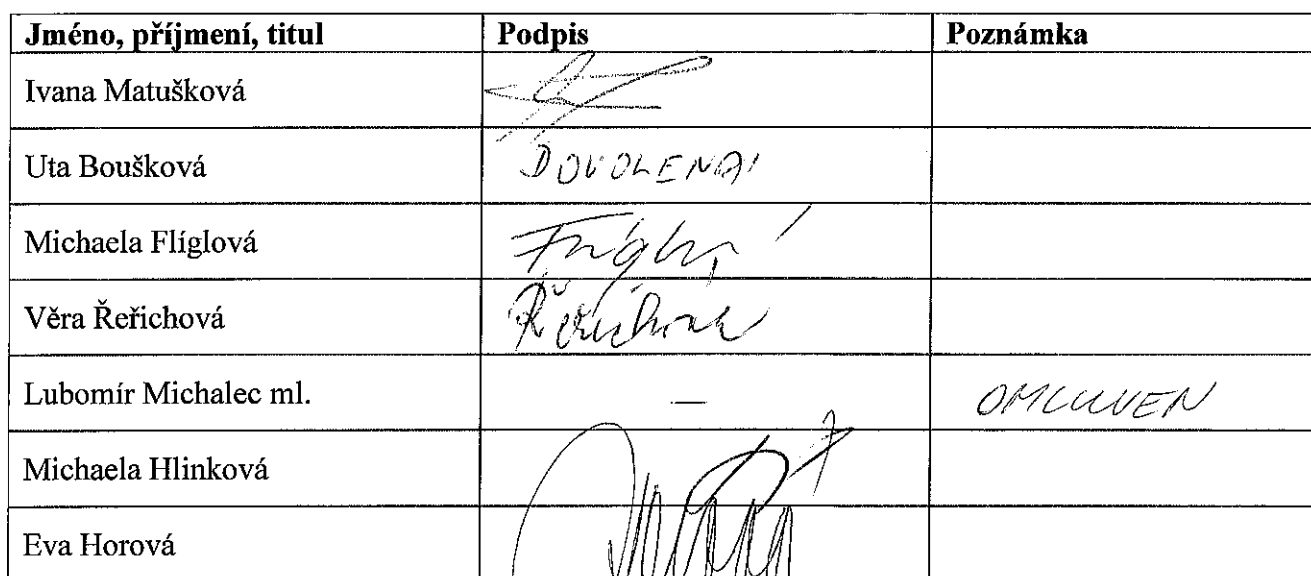 Jméno, příjmení, titul Podpis Poznámka
Ivana Matušková
Uta Boušková DOVOLENÁ
Michaela Flíglová
Věra Řeřichová Řeřichová
Lubomír Michalec ml. — OMLUVEN
Michaela Hlinková
Eva Horová